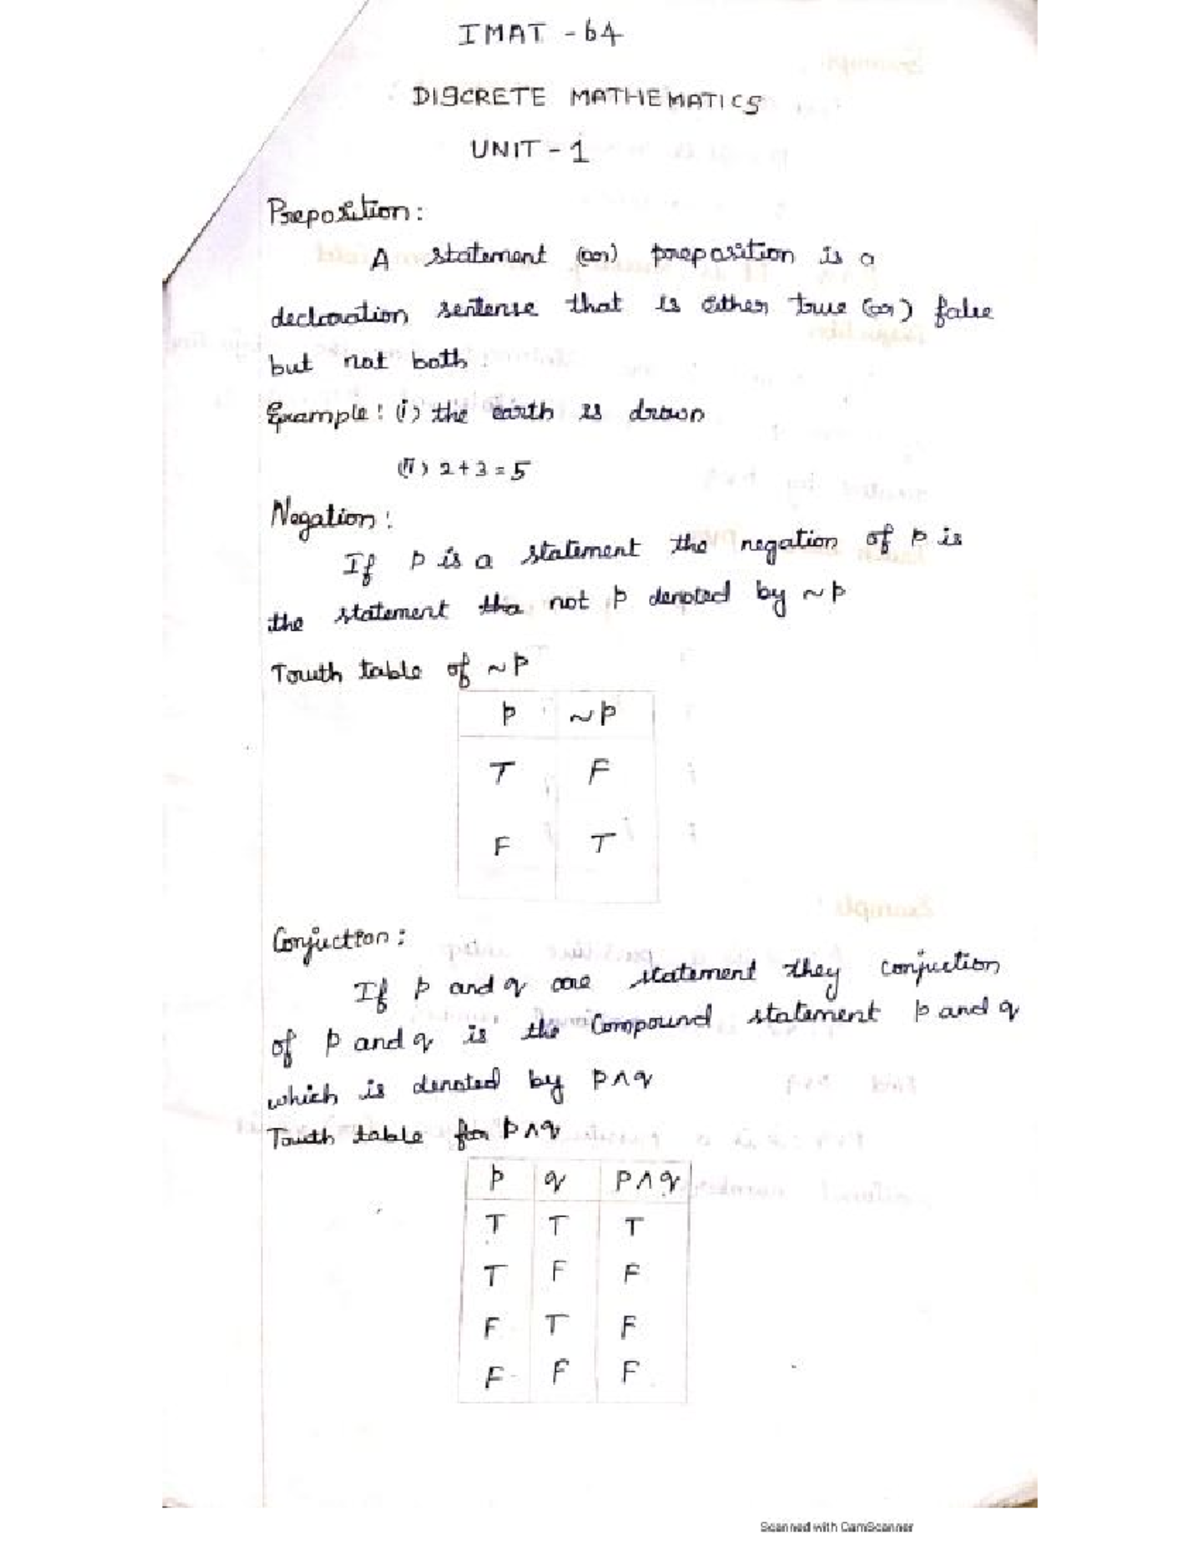 IMAT - 64
DISCRETE MATHEMATICS
UNIT - 1
Preposition:
A statement (or) preposition is a
declaration sentense that is either true (or) false
but not both.
Example: (i) the earth is
(ii) 2+3=5
Negation:
If p is a statement the negation of p is
the statement tha not p denoted by ~p
Truth table of ~p
p ~p
T F
F T
Conjuction:
If p and q are statement they conjuction
of p and q is the Compound statement p and q
which is denoted by p∧q
Truth table for p∧q
p q p∧q
T T T
T F F
F T F
F F F
Scanned with CamScanner